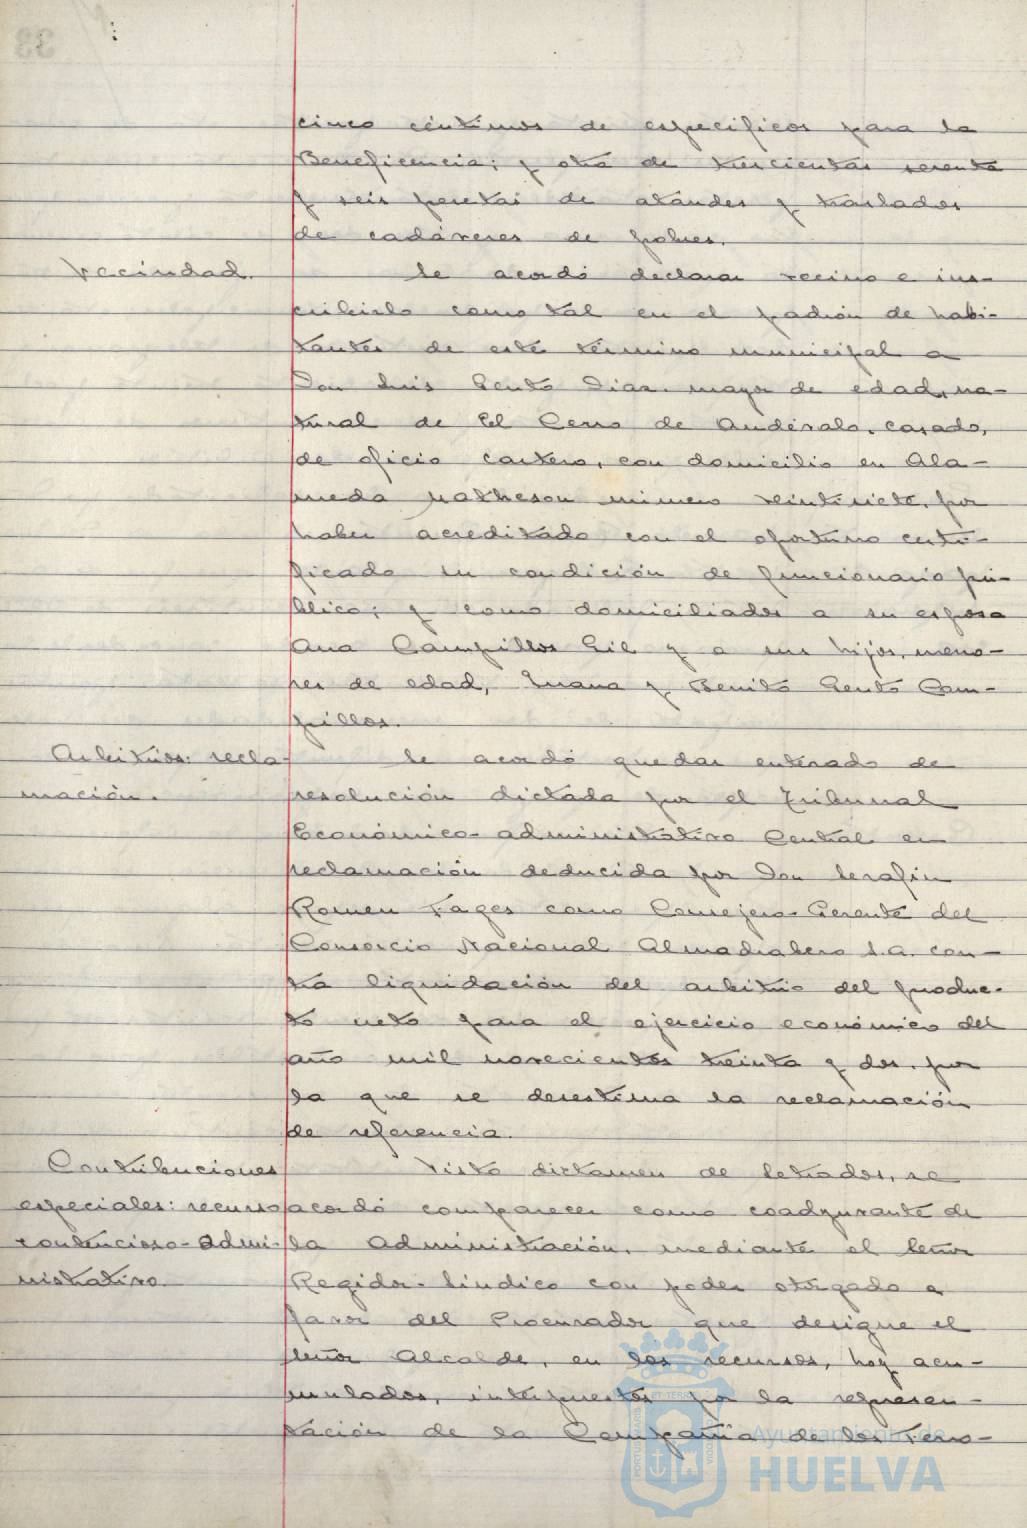 cinco céntimos de específicos para la
Beneficencia; y otra de trescientas sesenta
y seis pesetas de ataudes y traslados
de cadáveres de pobres.
Vecindad.
Se acordó declarar vecino e ins-
cribirlo como tal en el padrón de habi-
tantes de este término municipal a
Don Luis Gento Diaz. mayor de edad, na-
tural de El Cerro de Andévalo, casado,
de oficio cartero, con domicilio en Ala-
meda Matheson número veintisiete, por
haber acreditado con el oportuno certi-
ficado su condición de funcionario pú-
blico; y como domiciliados a su esposa
Ana Campillos Gil y a sus hijos, meno-
res de edad, Juana y Benito Gento Cam-
pillos.
Arbitrios: recla-
mación.
Se acordó quedar enterado de
resolución dictada por el Tribunal
Económico-administrativo Central en
reclamación deducida por Don Serafin
Romeu Fages como Consejero-Gerente del
Consorcio Nacional Almadrabero S.A. con-
tra liquidación del arbitrio del produc-
to neto para el ejercicio económico del
año mil novecientos treinta y dos, por
la que se desestima la reclamación
de referencia.
Contribuciones
especiales: recurso
contencioso-admi-
nistrativo.
Visto dictamen de Letrados, se
acordó comparecer como coadyuvante de
la Administración, mediante el Señor
Regidor-Síndico con poder otorgado a
favor del Procurador que designe el
Señor Alcalde, en los recursos, hoy acu-
mulados, interpuestos por la represen-
tación de la Compañía de los Ferro-
Ayuntamiento de
HUELVA